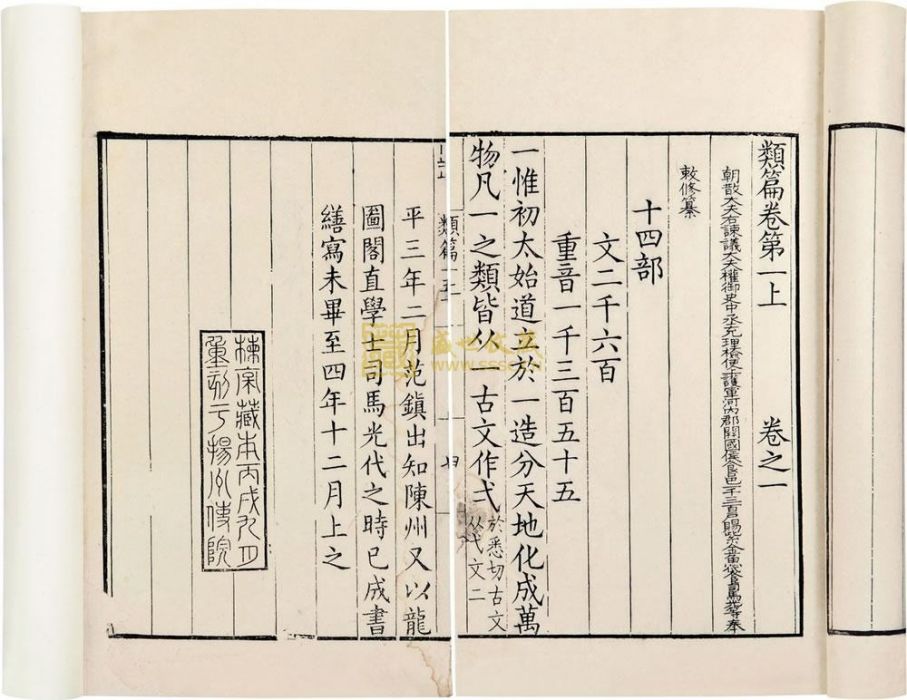 類篇卷第一上　卷之一
朝散大夫右諫議大夫權御史中丞充理檢使上護軍河內郡開國侯食邑一千三百戶賜紫金魚袋臣司馬光等奉
敕修纂
十四部
文二千六百
重音一千三百五十五
一惟初太始道立於一造分天地化成萬
物凡一之類皆从　古文作弌
於悉切古文
从弋文二
類篇
平三年二月范鎮出知陳州又以龍
圖閣直學士司馬光代之時已成書
繕寫未畢至四年十二月上之
楝亭藏本丙戌九月
重刻于揚州使院
盛世收藏